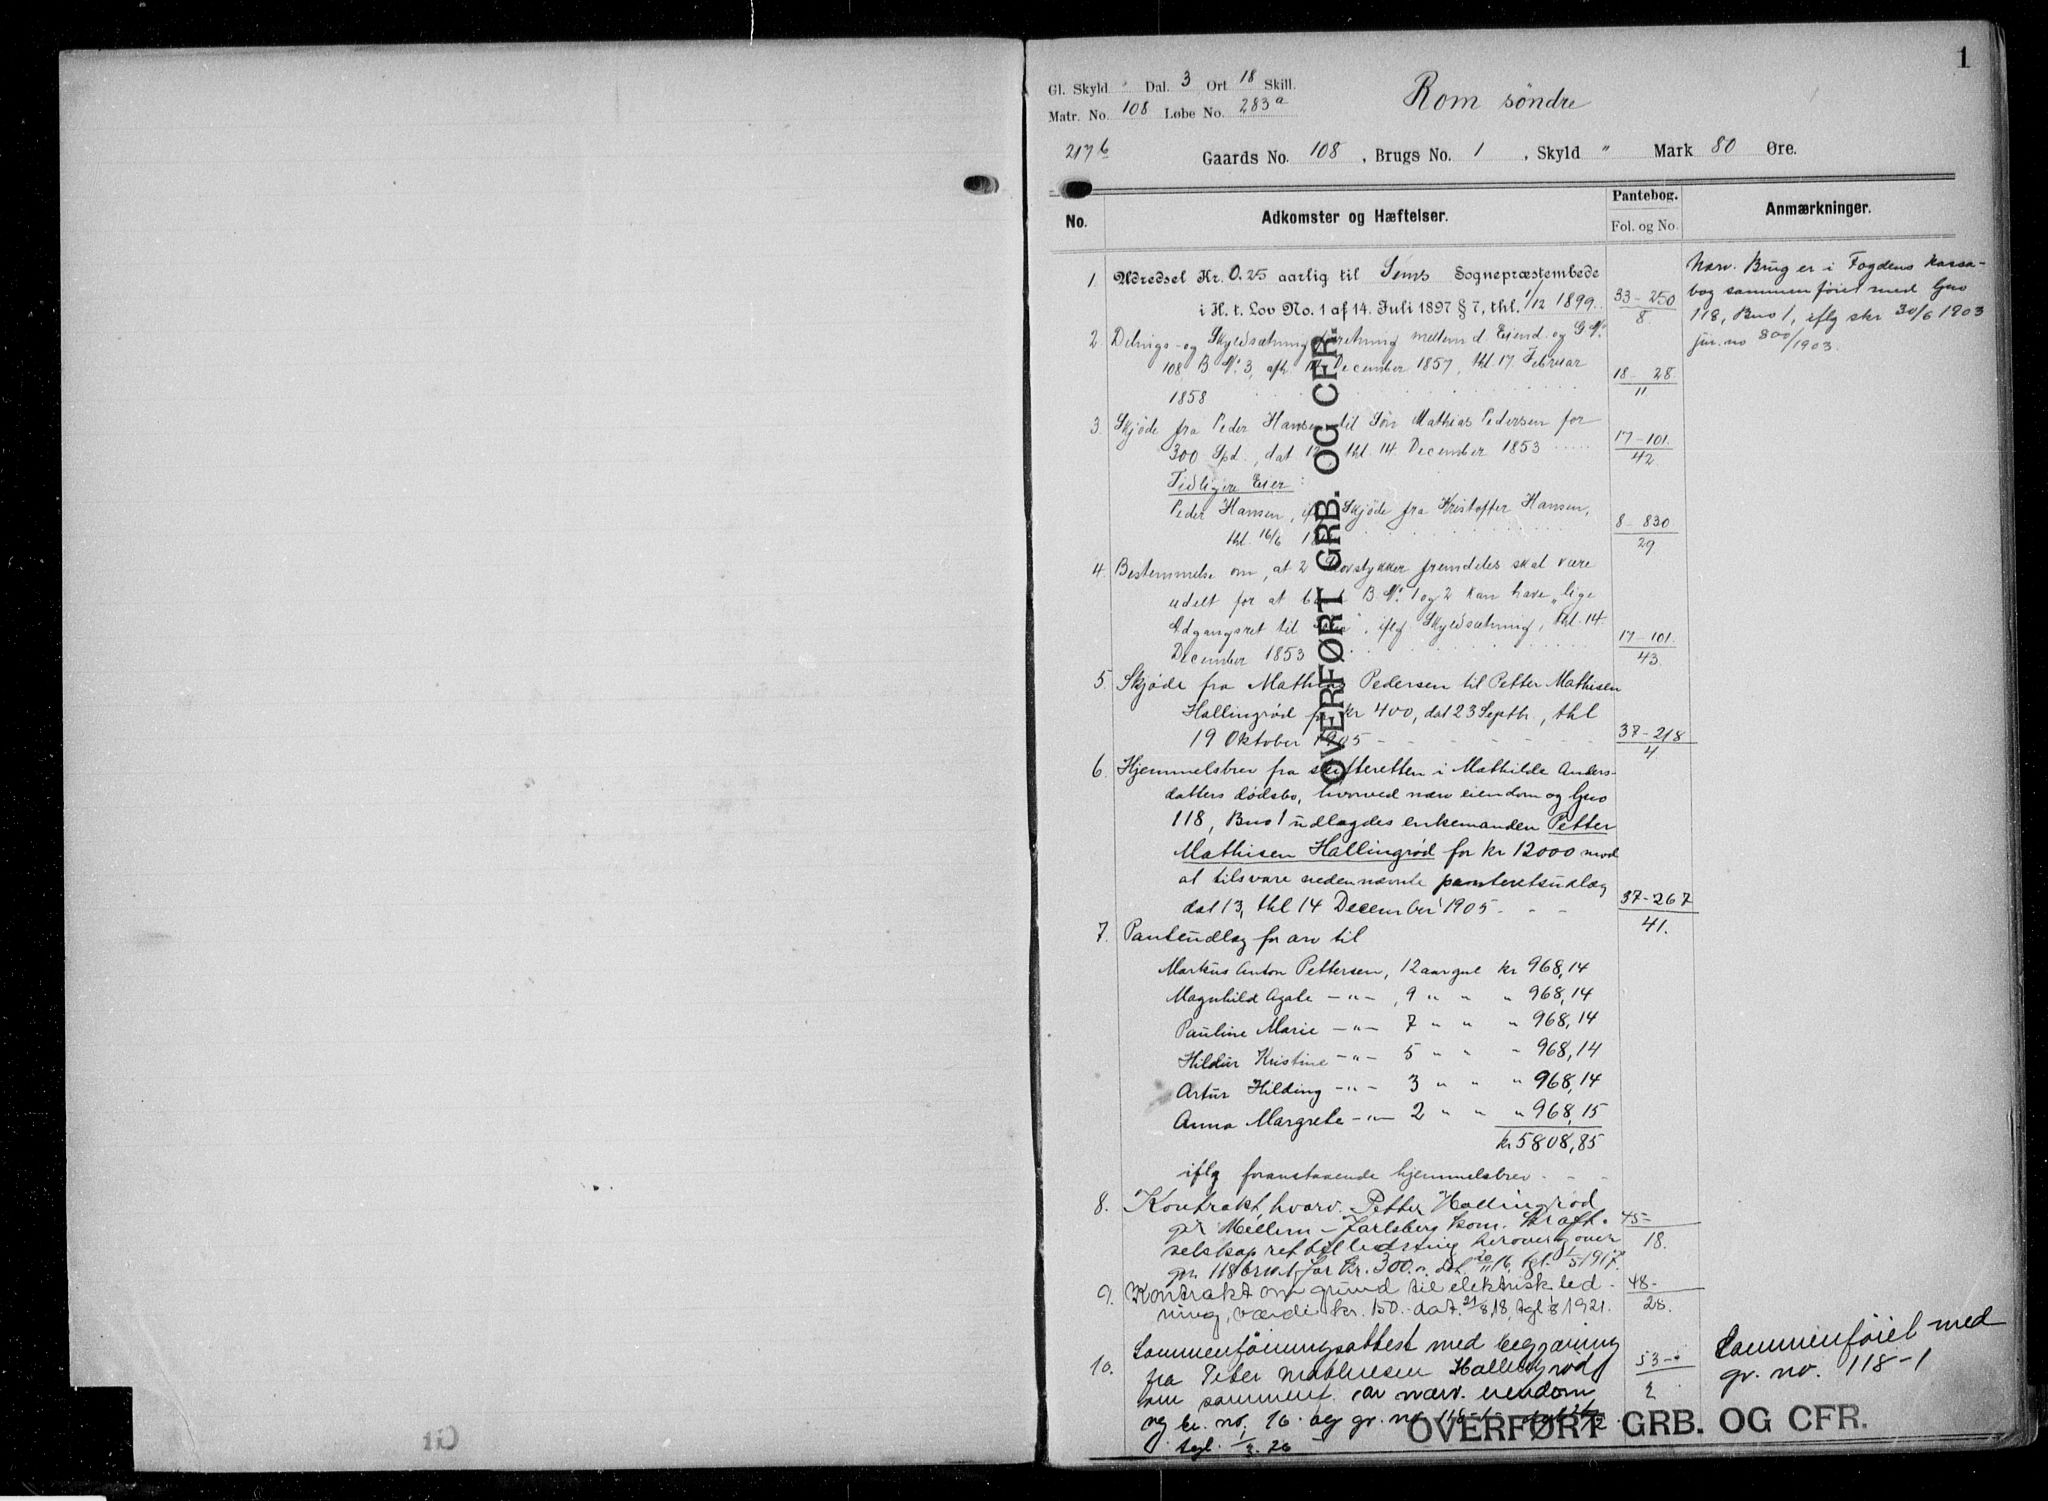 1
Gl. Skyld " Dal. 3 Ort 18 Skill.
Matr. No. 108 Løbe No. 283a
Rom søndre
217b
Gaards No. 108, Brugs No. 1, Skyld " Mark 80 Øre.
No. Adkomster og Hæftelser. Pantebog. Fol. og No. Anmærkninger.
1. Udredsel Kr. 0.25 aarlig til Sems Sognepræstembede
i H. t. Lov No. 1 af 14. Juli 1897 § 7, thl. 1/12 1899. 33-250/8
Nærv. Brug er i Fogdens Kassa-
bog sammenføiet med Gno
118, Bno 1, iflg skr 30/6 1903
jur. no 800/1903.
2. Delings- og Skyldsætningsforretning mellem d. Eiend. og G.No.
108, B.No. 3, afh. December 1857, thl. 17. Februar
1858 18-28/11
3. Skjøde fra Peder Hansen til Søn Mathias Pedersen for
300 Spd., dat 12, thl. 14 December 1853 17-101./42
Tidligere Eier:
Peder Hansen, Skjøde fra Kristoffer Hansen,
thl. 16/6 8-830/29
4. Bestemmelse om, at 2 Skovstykker fremdeles skal være
udelt for at B.No. 1 og 2 kan have "lige
Adgangsret til iflg. Skyldsætning, thl. 14.
December 1853 17-101./43.
5. Skjøde fra Mathias Pedersen til Petter Mathisen
Hallingrød for kr 400, dat 23 Septbr, thl
19 Oktober 1905 37-218/4
6. Hjemmelsbrev fra skifteretten i Mathilde Anders-
datters dødsbo, hvorved nærv eiendom og Gno
118, Bno 1 udlægdes enkemanden Petter
Mathisen Hallingrød for kr 12000 mod
at tilsvare nedennævnte panteretsudlæg
dat 13, thl 14 December 1905 37-267/41.
7. Panteudlæg for arv til
Markus Anton Pettersen, 12 aar gul kr 968,14
Magnhild Agate -"- , 9 " " " 968,14
Pauline Marie -"- 7 " " " 968,14
Hildur Kristine -"- 5 " " " 968,14
Artur Hilding -"- 3 " " " 968,14
Anna Margrete -"- 2 " " " 968,15
kr 5808,85
iflg foranstaaende hjemmelsbrev
8. Kontrakt, hvorv. Petter Hallingrød
gir Mellem-Jarlsberg kom. Kraft-
selskap ret til ledning herover og over
gn. 118 brn. 1 for kr. 300. dat 20/11 16. tgl. 1/5 1917. 45-/18.
9. Kontrakt om grund til elektrisk led-
ning, værdi kr. 150.- dat. 21/8 18, tgl 1/8 1921. 48-/28.
10. Sammenføiningsattest med begjæring
fra Peter Mathiesen Hallingrød
om sammenf. av nærv. eiendom
og br. no. 16. og gr. no. 118-1-
tgl. 1/3. 26 53-/2
Sammenføiet med
gr. no. 118-1
OVERFØRT GRB. OG CFR.
OVERFØRT GRB. OG CFR.